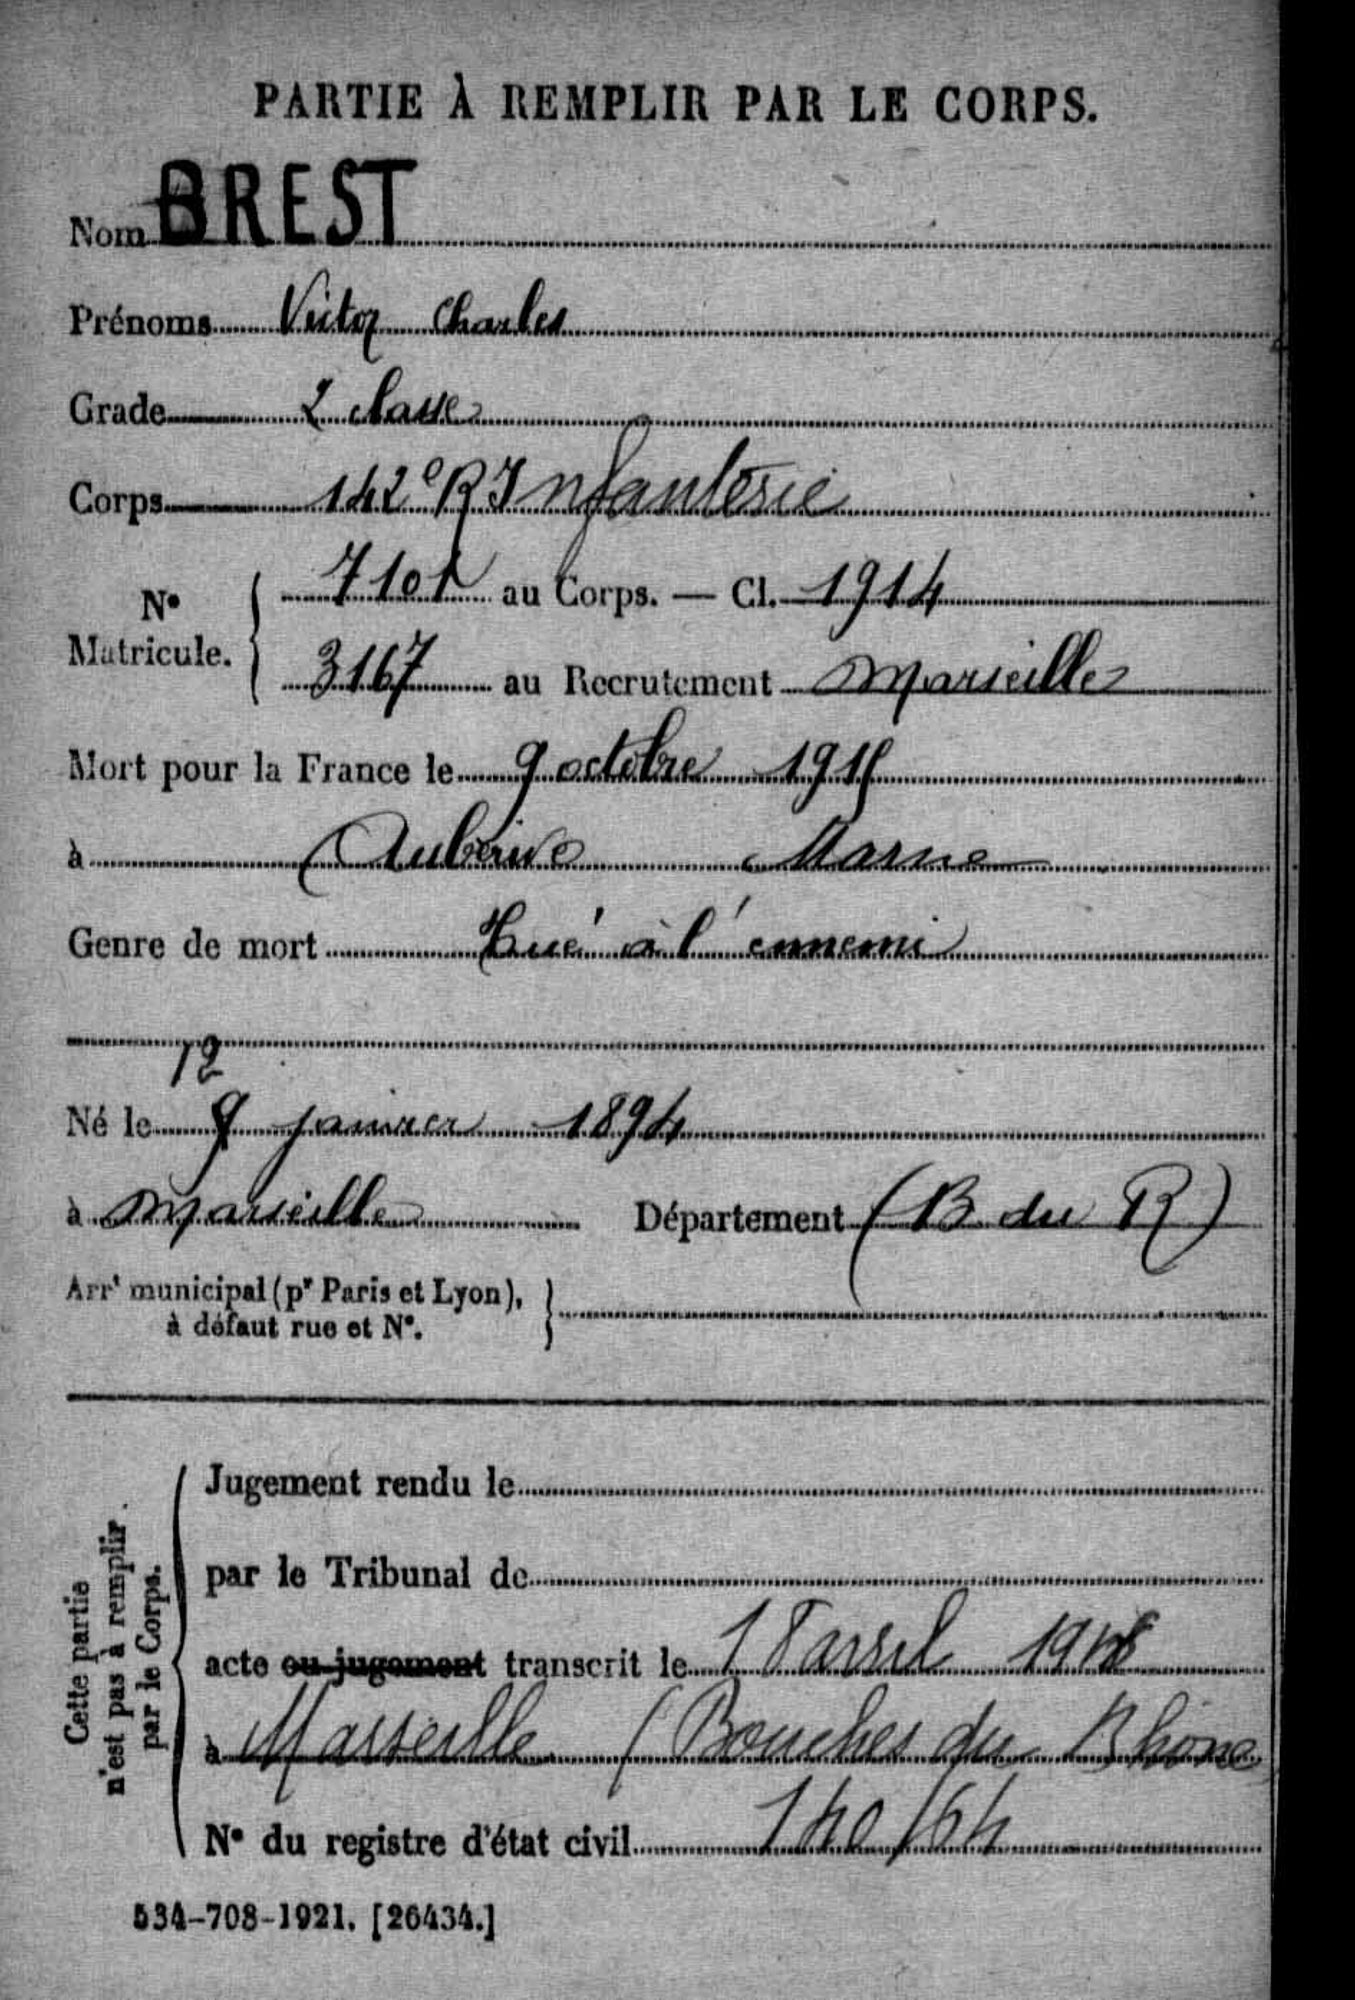 PARTIE À REMPLIR PAR LE CORPS.
Nom BREST
Prénoms Victor Charles
Grade 2 classe
Corps 142e R Infanterie
No Matricule. { 7101 au Corps. — Cl. 1914
3167 au Recrutement Marseille
Mort pour la France le 9 octobre 1915
à Auberive Marne
Genre de mort Tué à l'ennemi
12
Né le 9 janvier 1894
à Marseille Département (B du R)
Arrt municipal (pr Paris et Lyon),
à défaut rue et No. }
Cette partie
n'est pas à remplir
par le Corps.
Jugement rendu le
par le Tribunal de
acte ou jugement transcrit le 18 avril
à Marseille (Bouches du Rhone
No du registre d'état civil 140/64
534-708-1921. [26434.]